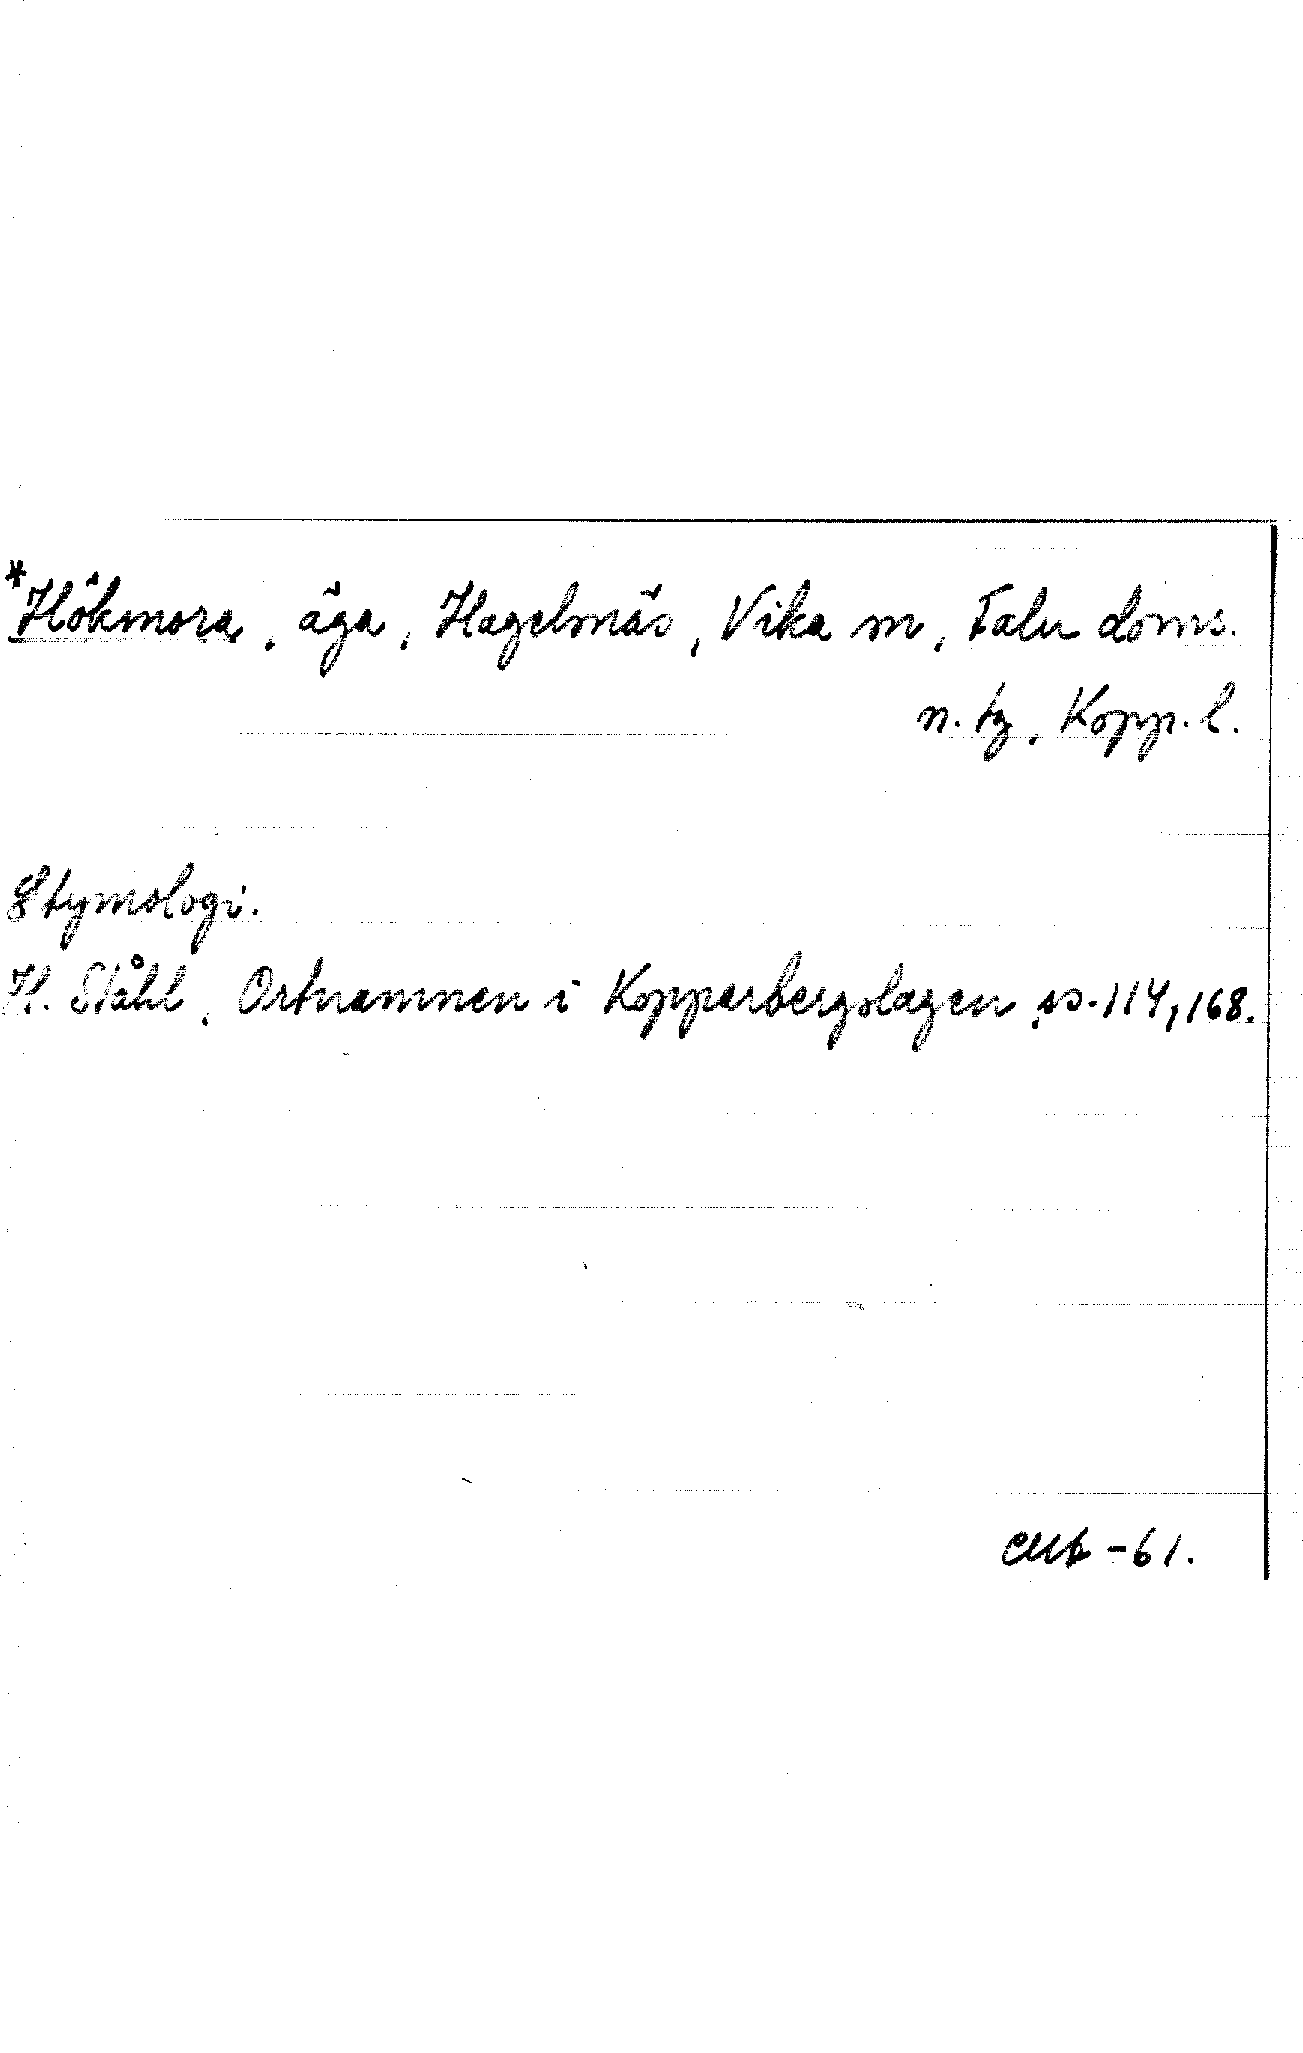 *Hökmora, äga, Hagelnäs, Vika sn, Falu doms.
n. tg, Kopp. l.
Etymologi.
H. Ståhl, Ortnamnen i Kopparbergslagen, ss. 114, 168.
-61.